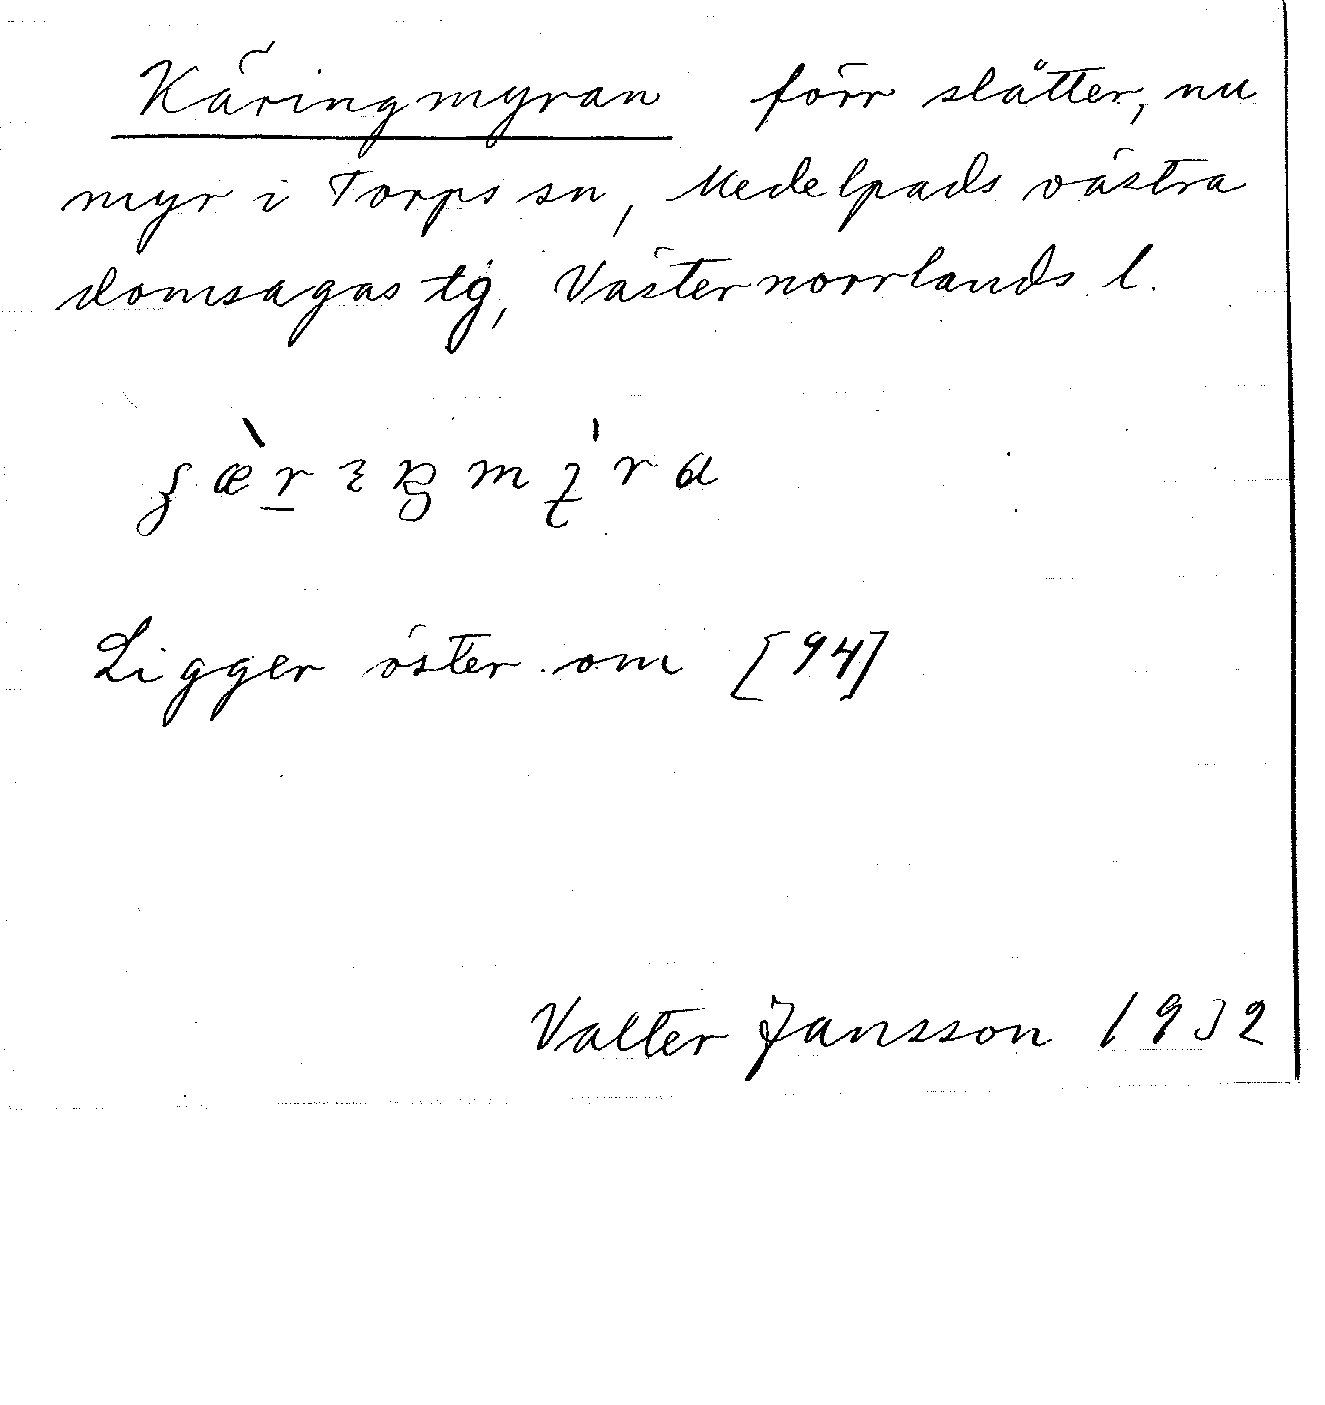 Käringmyran förr slåtter, nu
myr i Torps sn, Medelpads västra
domsagas tg, Västernorrlands l.
Ligger öster om [94]
Valter Jansson 1932